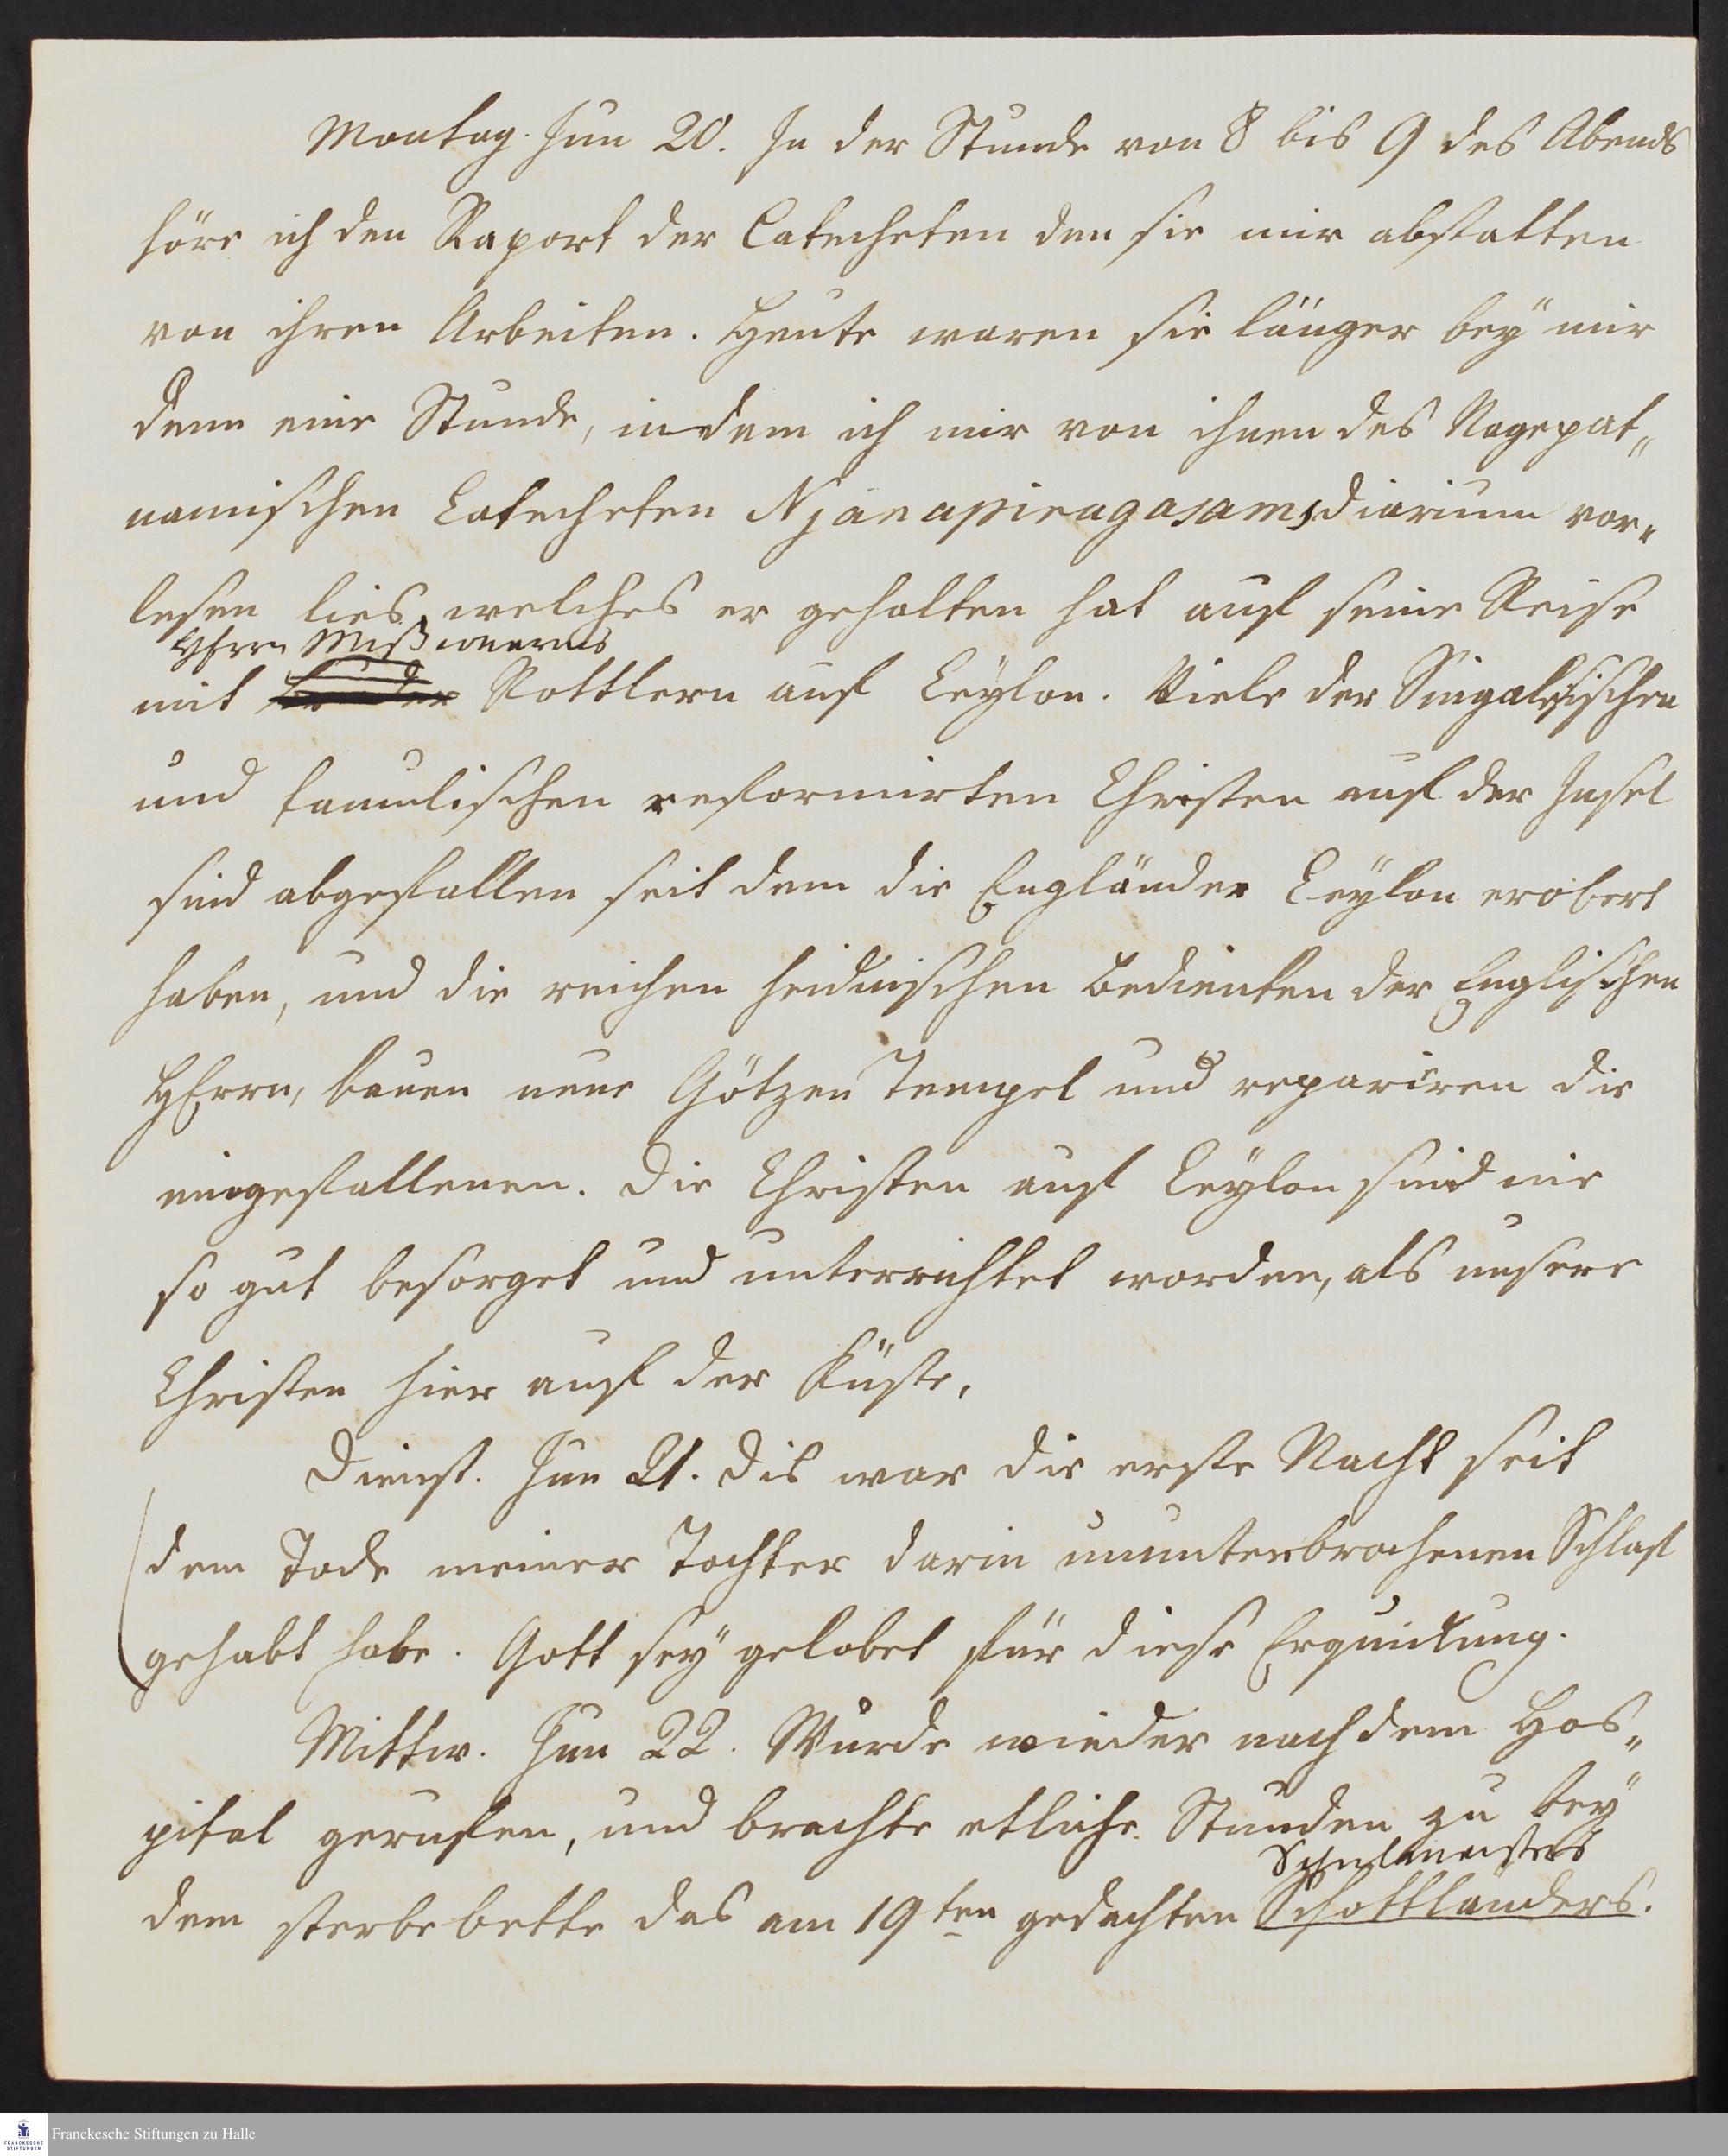 Montag. Jun 20. In der Stunde von 8 bis 9 des Abends
höre ich den Raport der Catecheten den sie mir abstatten
von ihren Arbeiten. Heute waren sie länger beÿ mir
denn eine Stunde, indem ich mir von ihnen des Nagepat„
namischen Catecheten Njanapiragasams diarium vor„
lesen lies, welches er gehalten hat auf seine Reise
HErrn Missionarius
mit Rottlern auf Ceÿlon. Viele der Singalesischen
und tamulischen reformirten Christen auf der Insel
sind abgefallen seit dem die Engländer Ceÿlon erobert
haben, und die reichen heidnischen Bedienten der Englischen
HErrn, bauen neue Götzen Tempel und repariren die
eingefallenen. Die Christen auf Ceÿlon sind nie
so gut besorget und unterrichtet worden, als unsere
Christen hier auf der Küste.
Dienst. Jun 21. Dis war die erste Nacht seit
dem Tode meiner Tochter darin ununterbrochenen Schlaf
gehabt habe. Gott seÿ gelobet für diese Erquickung.
Mittw. Jun 22. Wurde wieder nach dem Hos„
pital gerufen, und brachte etliche Stunden zu beÿ
Schulmeisters
dem sterbebette das am 19ten gedachten Schottländers.
Franckesche Stiftungen zu Halle